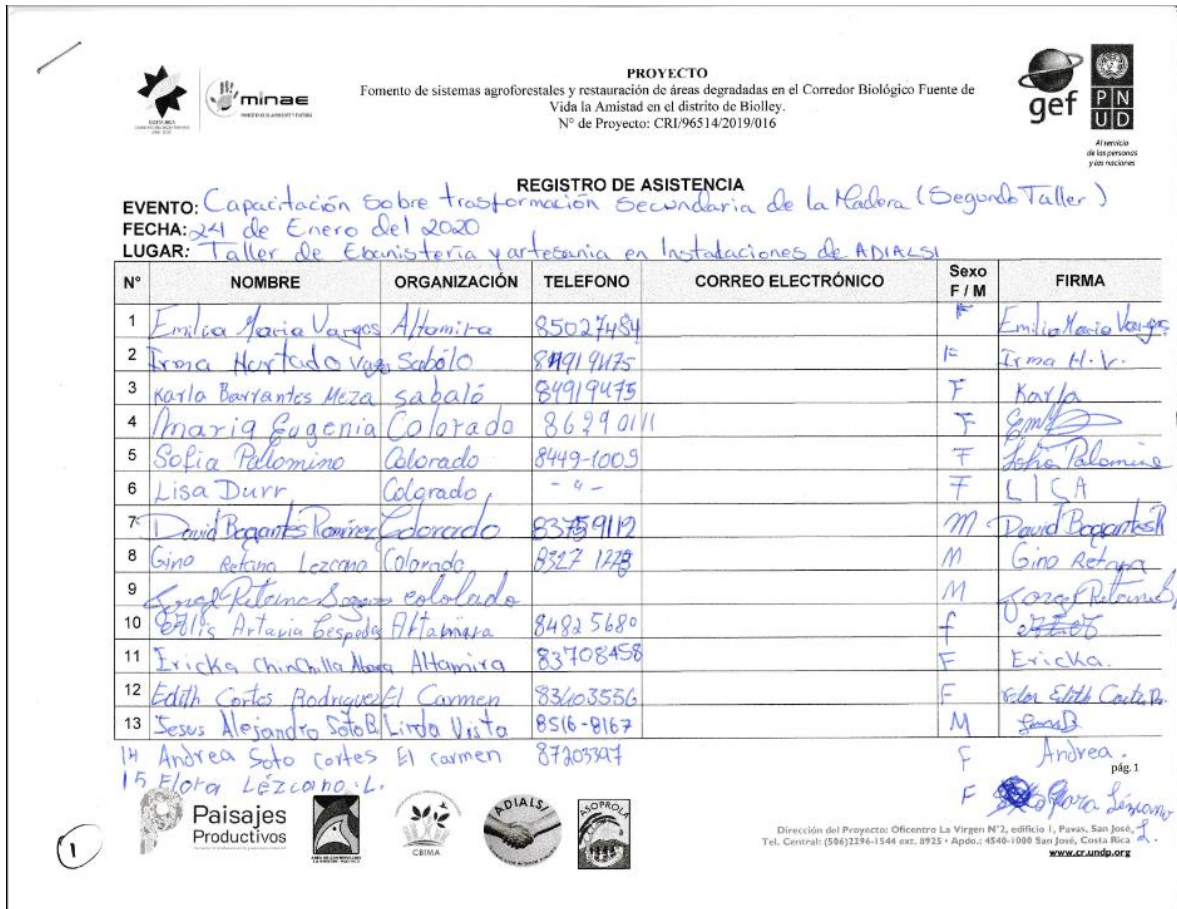 PROYECTO
Fomento de sistemas agroforestales y restauración de áreas degradadas en el Corredor Biológico Fuente de
Vida la Amistad en el distrito de Biolley.
N° de Proyecto: CRI/96514/2019/016
COSTA RICA
minae
gef
PN
UD
Al servicio
de las personas
y las naciones
REGISTRO DE ASISTENCIA
EVENTO: Capacitación sobre trasformación Secundaria de la Madera (Segundo Taller)
FECHA: 24 de Enero del 2020
LUGAR: Taller de Ebanistería y artesania en Instalaciones de ADIALSI
N° NOMBRE ORGANIZACIÓN TELEFONO CORREO ELECTRÓNICO Sexo F / M FIRMA
1 Emilia Maria Vargas Altamira 85027484 F Emilia Maria Vargas
2 Irma Hurtado Sabálo F Irma H.V.
3 Karla Barrantes Meza sabaló 84919475 F Karla
4 Maria Eugenia Colorado 86290111 F
5 Sofia Palomino Colorado 8449-1009 F Sofia Palomino
6 Lisa Durr Colorado - " - F LISA
7 David Bagantes Ramirez Colorado 83759112 M David Bagantes R
8 Gino Retana Lezcano Colorado 8327 M Gino Retana
9 Retana cololado M
10 Artavia Cespedes Altamira 84825680 f
11 Ericka Chinchilla Altamira 83708458 F Ericka.
12 Edith Cortes Rodriguez El Carmen 83403556 F Edith
13 Jesus Alejandro Soto B. Linda Vista 8516-8167 M
14 Andrea Soto Cortes El Carmen 87203397 F Andrea.
pág. 1
15 Flora Lézcano L. F Flora Lézcano L.
1
Paisajes
Productivos
CBIMA
ADIALSI
ASOPROLA
Dirección del Proyecto: Oficentro La Virgen N°2, edificio 1, Pavas, San José,
Tel. Central: (506)2296-1544 ext. 8925 • Apdo.: 4540-1000 San José, Costa Rica
www.cr.undp.org